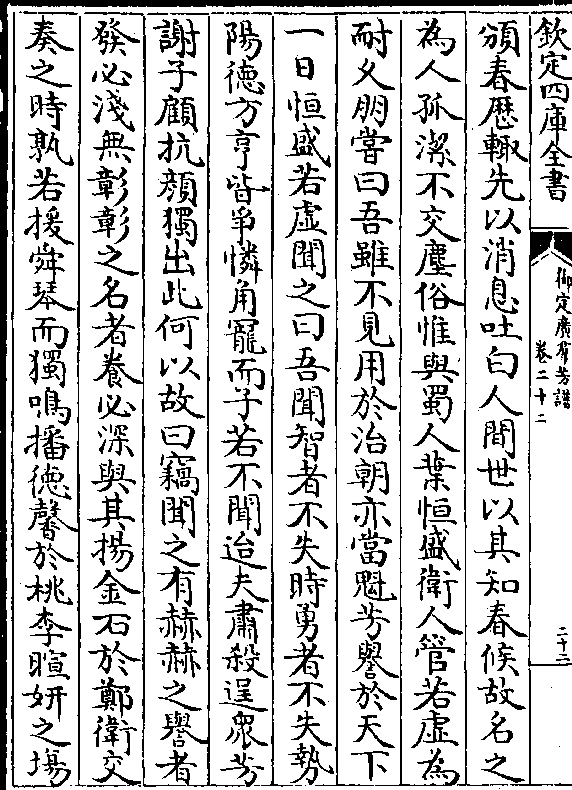 欽定四庫全書
御定廣羣芳譜
卷二十二
二十三
頒春厯輙先以消息吐白人間世以其知春候故名之
為人孤潔不交塵俗惟與蜀人葉恒盛衛人管若虚為
耐久朋嘗曰吾雖不見用於治朝亦當魁芳譽於天下
一日恒盛若虚聞之曰吾聞智者不失時勇者不失勢
陽徳方亨皆爭憐角寵而子若不聞迨夫肅殺逞衆芳
謝子顧抗顔獨出此何以故曰竊聞之有赫赫之譽者
發必淺無彰彰之名者養必深與其揚金石於鄭衛交
奏之時孰若援舜琴而獨鳴播徳馨於桃李暄妍之塲